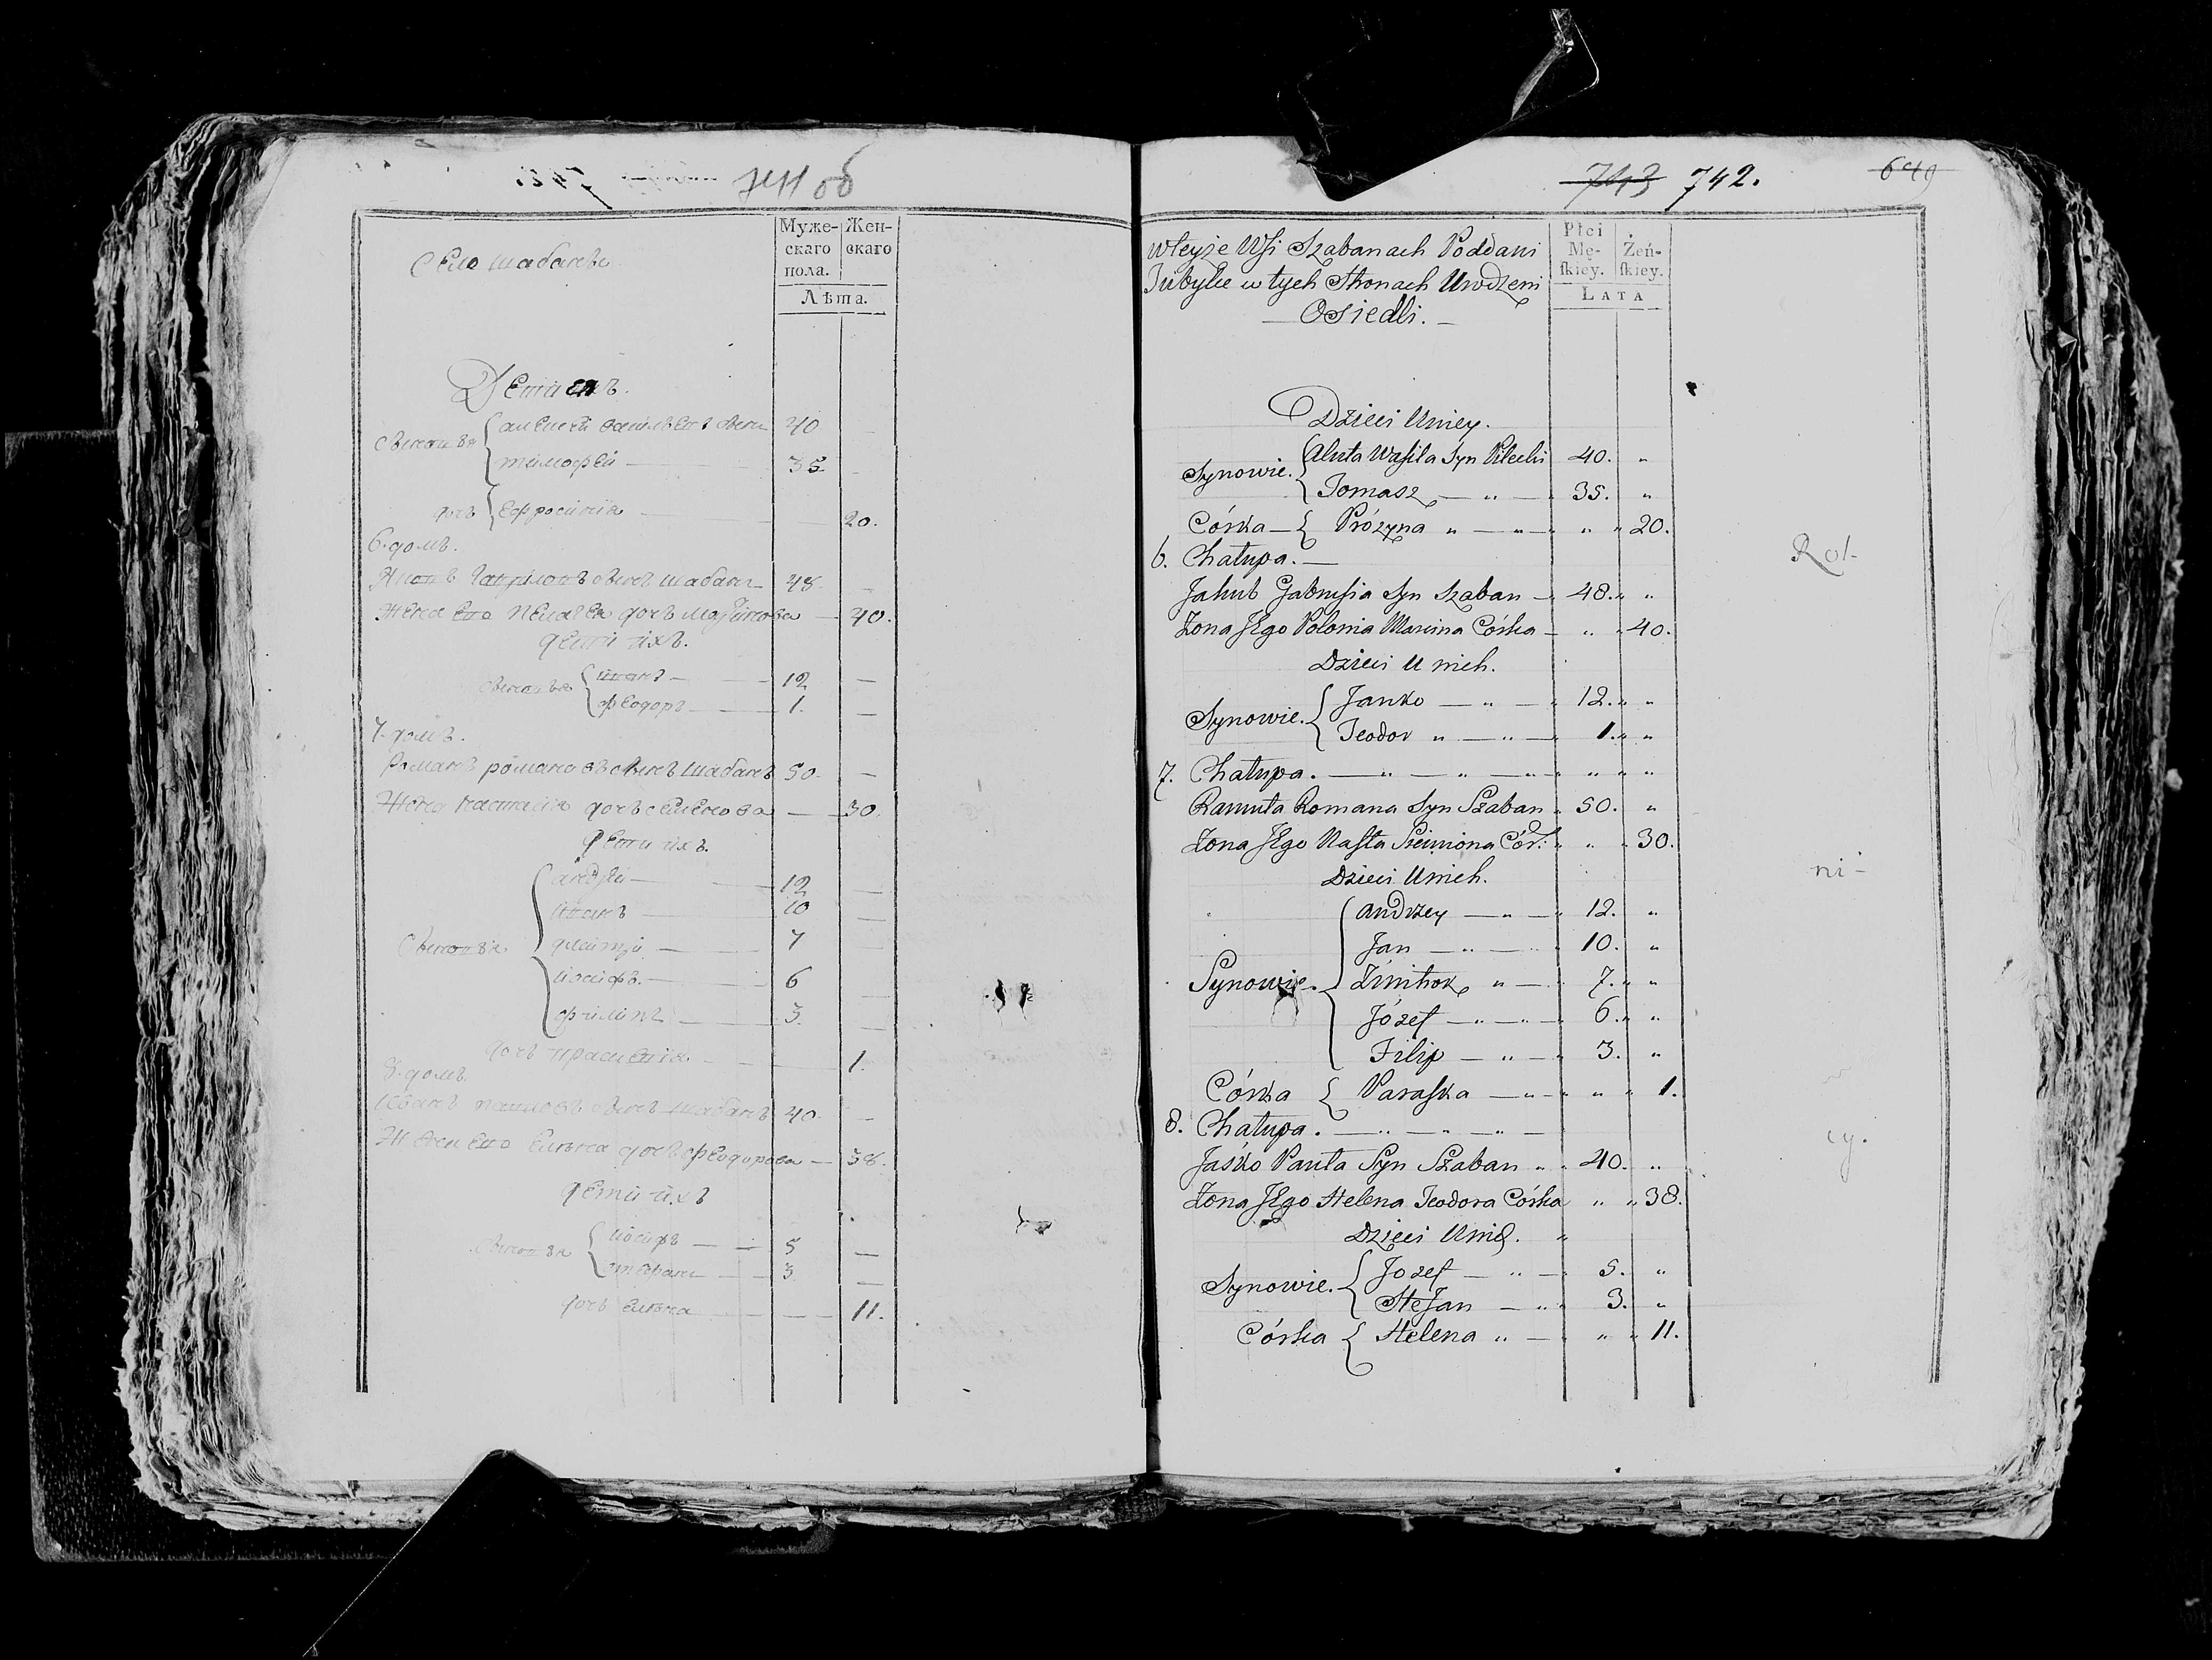 741 об
Муже-
скаго
пола.
Жен-
скаго
Лѣта.
Село шабанъ
Дети ея
сыновя
алексей василевъ сынъ 40 —
тимофей — 35 —
дочь ефросинiя — 20.
6. домъ.
Яковъ гаврiловъ сынъ шабанъ — 48. —
Жена его пелагея дочь мартинова — 40.
дети iхъ.
сыновя
iванъ — 12 —
феодоръ — 1. —
7. домъ.
Романъ романовъ сынъ шабанъ 50. —
Жена настасiя дочь семенова — 30.
дети iхъ.
сыновя
андрей — 12 —
iванъ — 10 —
дмитрiй — 7 —
iосифъ. — 6 —
филипъ — 3. —
дочь — 1.
8. домъ.
iванъ павловъ сынъ шабанъ 40. —
Жена его елена дочь феодорова — 38.
дети iхъ
сыновя
iосифъ — 5 —
стефанъ — 3. —
дочь елена — 11.
743 742.
649
Płci
Mę-
ſkiey.
Żeń-
ſkiey.
LATA
wteyże Wsi Szabanach Poddani
Jnbylce w tych Stronach Urodzeni
Osiedli. —
Dzieci Uniey.
Synowie.
Aluta Wasila Syn Pilecki 40. "
Tomasz — " — 35. "
Córka — { Prózyna " — " — " " 20.
6. Chałupa. —
Rol-
Jakub Gabrysia Syn Szaban — 48. " "
Zona Jego Polonia Marcina Córka — " " 40.
Dzieci U nich.
Synowie.
Janko — " — 12. " "
Teodor " — " — 1. " "
7. Chałupa. — " — " — " — " " "
Ramuta Romana Syn Szaban " 50. "
Zona Jego Nasta Szeimona Cór: " " " 30.
Dzieci Unich.
ni-
Synowie.
Andrzey — " — 12. "
Jan — " — 10. "
Zmitrok " — 7. " "
Józef — " — " — 6. " "
Filip — " — 3. "
Córka { Paraska — " — " " 1.
8. Chałupa. — " — " — " —
cy.
Jaśko Pauła Syn Szaban " " 40. "
Zona Jego Helena Teodora Córka " " 38.
Dzieci Unich. "
Synowie.
Jozef — " — 5. "
Stefan — " " 3. "
Córka { Helena " — " " 11.